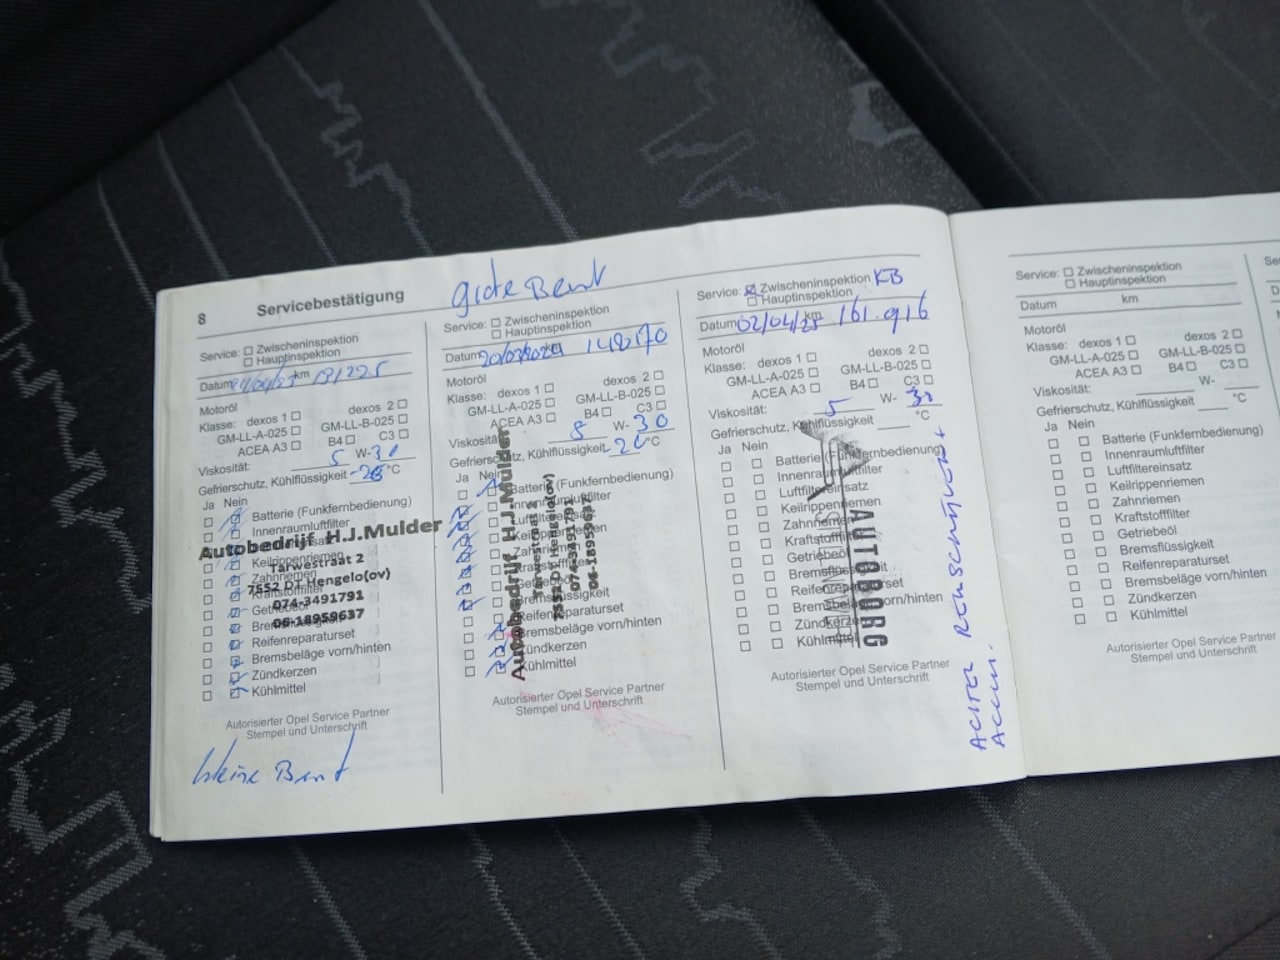 8 Servicebestätigung
Service: Zwischeninspektion
Hauptinspektion
Datum km
Motoröl
Klasse: dexos 1 dexos 2
GM-LL-A-025 GM-LL-B-025
ACEA A3 B4 C3
Viskosität: 5 W-30
Gefrierschutz, Kühlflüssigkeit °C
Ja Nein
Batterie (Funkfernbedienung)
Innenraumluftfilter
Autobedrijf H.J.Mulder
Keilrippenriemen
Tarwestraat 2
Zahnriemen
7552 DT Hengelo(ov)
Kraftstofffilter
074-3491791
Getriebeöl
06-18959637
Reifenreparaturset
Bremsbeläge vorn/hinten
Zündkerzen
Kühlmittel
Autorisierter Opel Service Partner
Stempel und Unterschrift
Service: Zwischeninspektion
Hauptinspektion
Datum
Motoröl
Klasse: dexos 1 dexos 2
GM-LL-A-025 GM-LL-B-025
ACEA A3 B4 C3
Viskosität W-30
Gefrierschutz, Kühlflüssigkeit °C
Ja Nein
Batterie (Funkfernbedienung)
Innenraumluftfilter
Reifenreparaturset
Bremsbeläge vorn/hinten
Zündkerzen
Kühlmittel
Autobedrijf H.J.Mulder
Tarwestraat 2
7552 DT Hengelo(ov)
074-3491791
06-18959637
Autorisierter Opel Service Partner
Stempel und Unterschrift
Service: Zwischeninspektion KB
Hauptinspektion
Datum 02/04/25 km 161.916
Motoröl
Klasse: dexos 1 dexos 2
GM-LL-A-025 GM-LL-B-025
ACEA A3 B4 C3
Viskosität: 5 W-30
Gefrierschutz, Kühlflüssigkeit °C
Ja Nein
Batterie (Funkfernbedienung)
Innenraumluftfilter
Luftfiltereinsatz
Keilrippenriemen
Zahnriemen
Kraftstofffilter
Getriebeöl
Bremsflüssigkeit
Reifenreparaturset
Bremsbeläge vorn/hinten
Zündkerzen
Kühlmittel
AUTOBORG
Autorisierter Opel Service Partner
Stempel und Unterschrift
ACHTER REMSCHIJVEN +
ACCU.
Service: Zwischeninspektion
Hauptinspektion
Datum km
Motoröl
Klasse: dexos 1 dexos 2
GM-LL-A-025 GM-LL-B-025
ACEA A3 B4 C3
Viskosität: W-
Gefrierschutz, Kühlflüssigkeit °C
Ja Nein
Batterie (Funkfernbedienung)
Innenraumluftfilter
Luftfiltereinsatz
Keilrippenriemen
Zahnriemen
Kraftstofffilter
Getriebeöl
Bremsflüssigkeit
Reifenreparaturset
Bremsbeläge vorn/hinten
Zündkerzen
Kühlmittel
Autorisierter Opel Service Partner
Stempel und Unterschrift